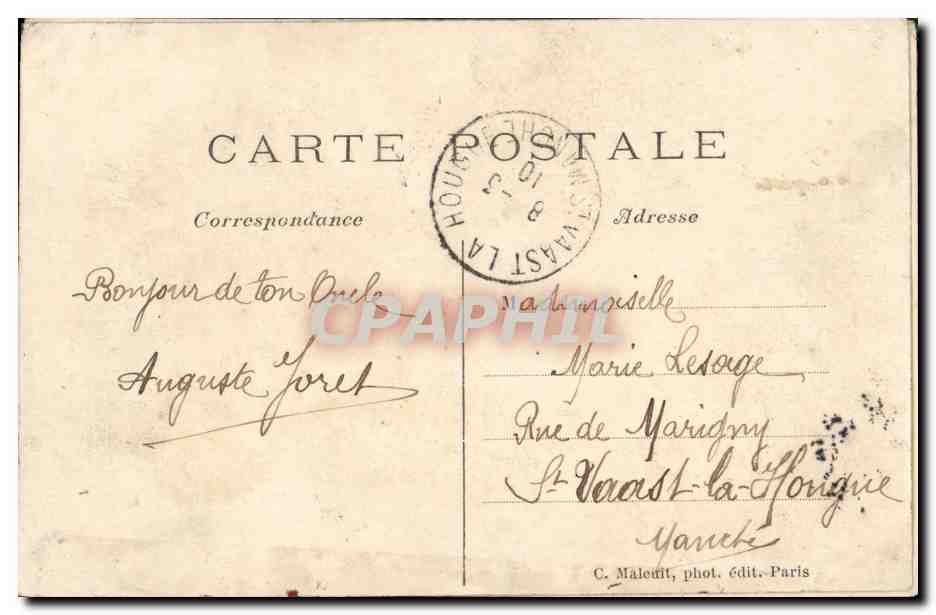 CARTE POSTALE
ST VAAST LA HOUGUE
10
8 - 3
Correspondance
Adresse
Bonjour de ton Oncle
Auguste Joret
CPAPHIL
Mademoiselle
Marie Lesage
Rue de Marigny
St Vaast-la-Hougue
Manche
C. Malcuit, phot. édit. Paris